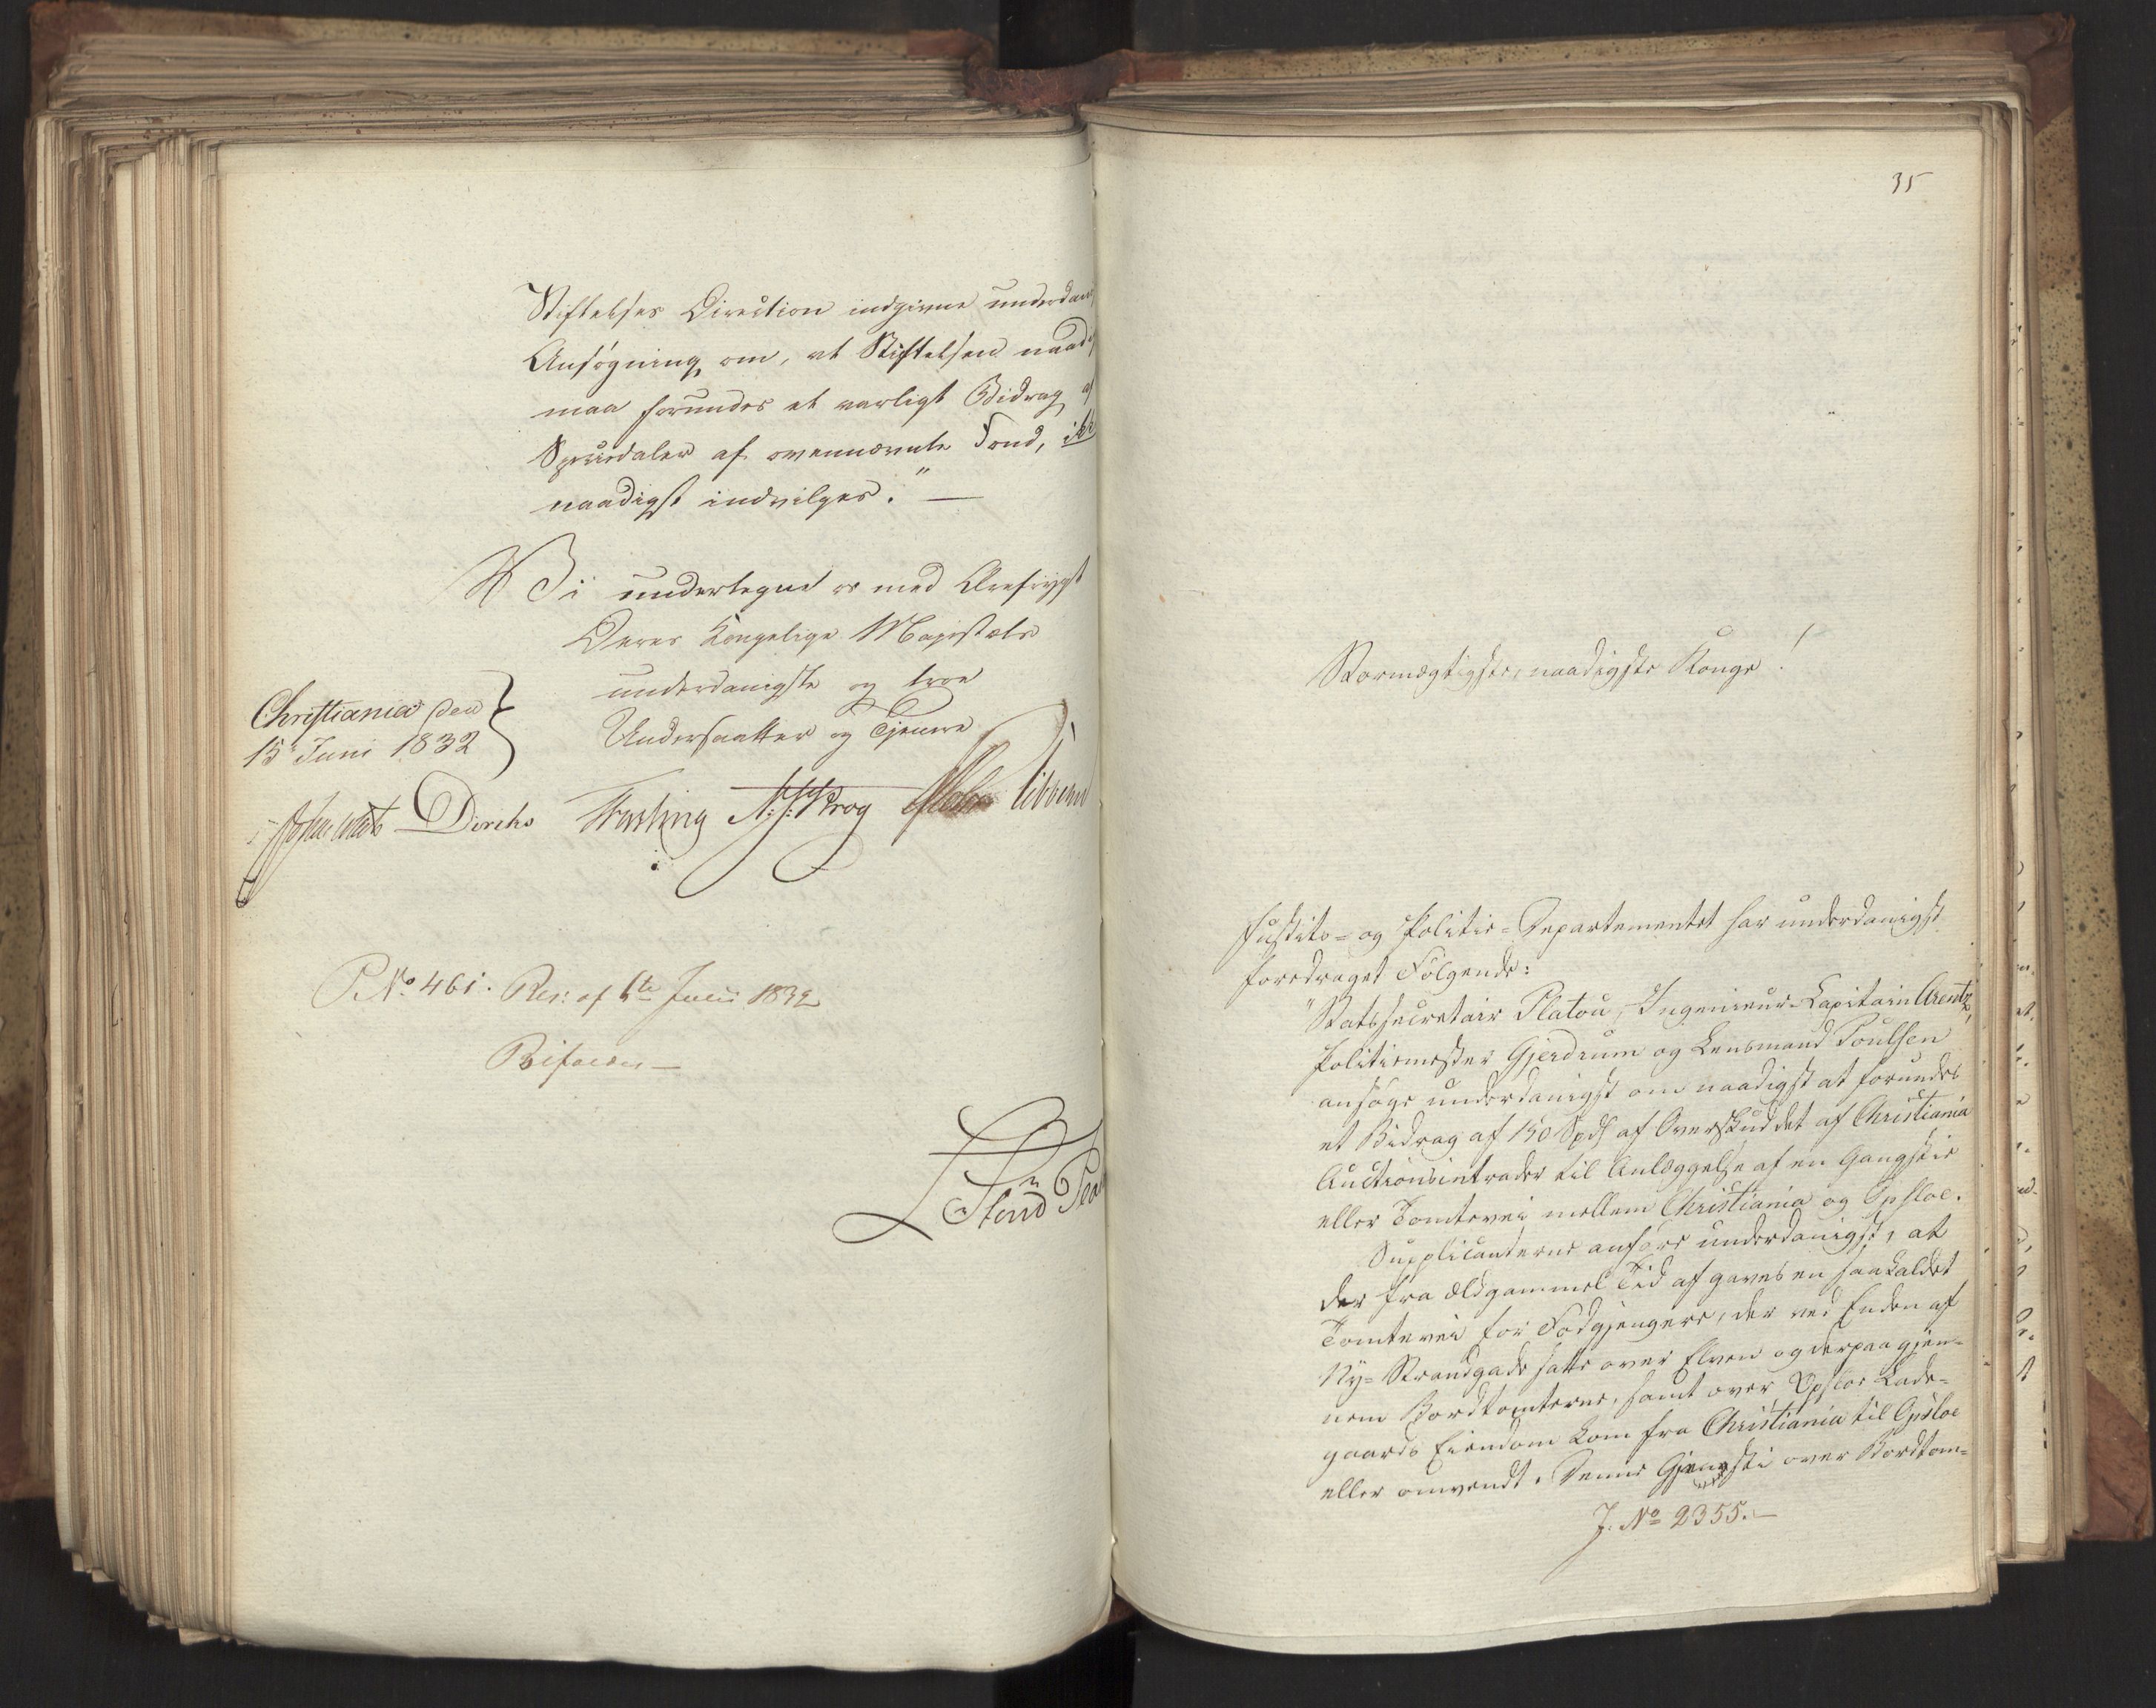 Stiftelses Direction indgivne underdan
Ansøgning om, at Stiftelsen naadig
maa forundes et aarligt Bidrag af
Speciedaler af ovennævnte Fond, ikk
naadigst indvilges." —
Vi undertegne os med Ærefrygt
Deres Kongelige Majestæts
underdanigste og troe
Undersaatter og Tjenere
Christiania den
15de Juni 1832
Diriks Fasting Krog Vibe
P. No. 461. Res: af 6te Julii 1832
Bifaldes —
35
Stormægtigste, naadigste Konge!
Justits- og Politie-Departementet har underdanigst
foredraget Følgende:
"Statssecretair Platou, Ingenieur-Capitain Arentz,
Politiemester Gjerdrum og Lensmand Poulsen
ansøge underdanigst om naadigst at forundes
et Bidrag af 150 Spdl af Overskuddet af Christiania
Auctionsintrader til Anlæggelse af en Gangstie
eller Tomtevei mellem Christiania og Opsloe.
Supplicanterne anføre underdanigst, at
der fra ældgammel Tid af gaves en saakaldet
Tomtevei for Fodgjengere, der ved Enden af
Ny-Strandgade satte over Elven og derpaa gjen-
nem Bordtomterne, samt over Opsloe Lade-
gaards Eiendom kom fra Christiania til Opsloe
eller omvendt. Denne Gjengsti over Bordtom-
J. No 2355. —